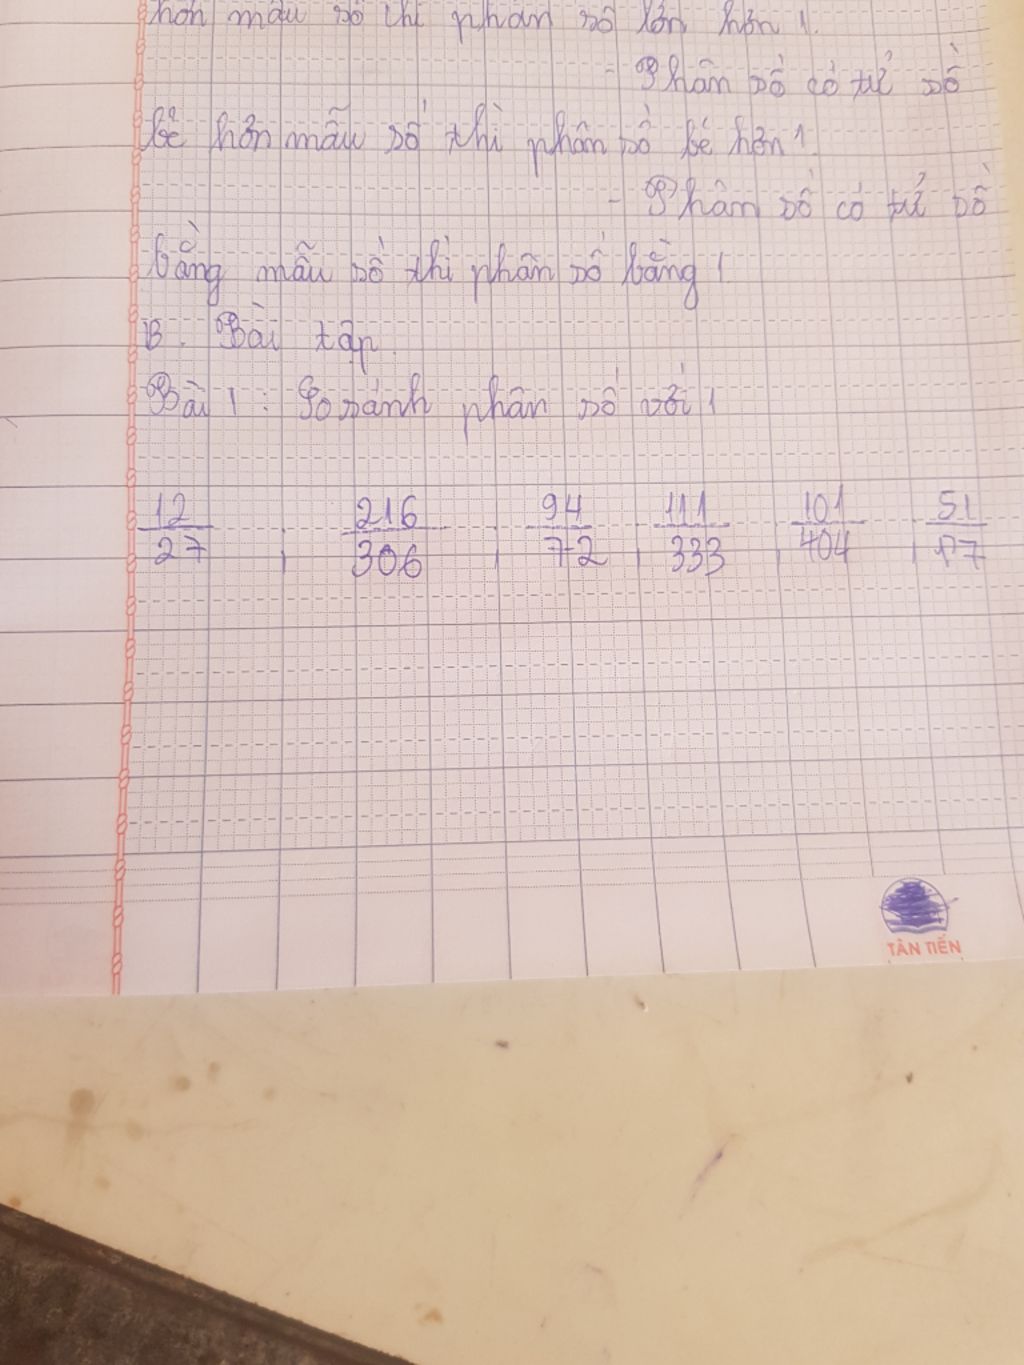 hơn mẫu số thì phân số lớn hơn 1.
- Phân số có tử số
bé hơn mẫu số thì phân số bé hơn 1.
- Phân số có tử số
bằng mẫu số thì phân số bằng 1
B. Bài tập.
Bài 1 : So sánh phân số với 1
12/27 ; 216/306 ; 94/72 ; 111/333 ; 101/404 ; 51/
TÂN TIẾN